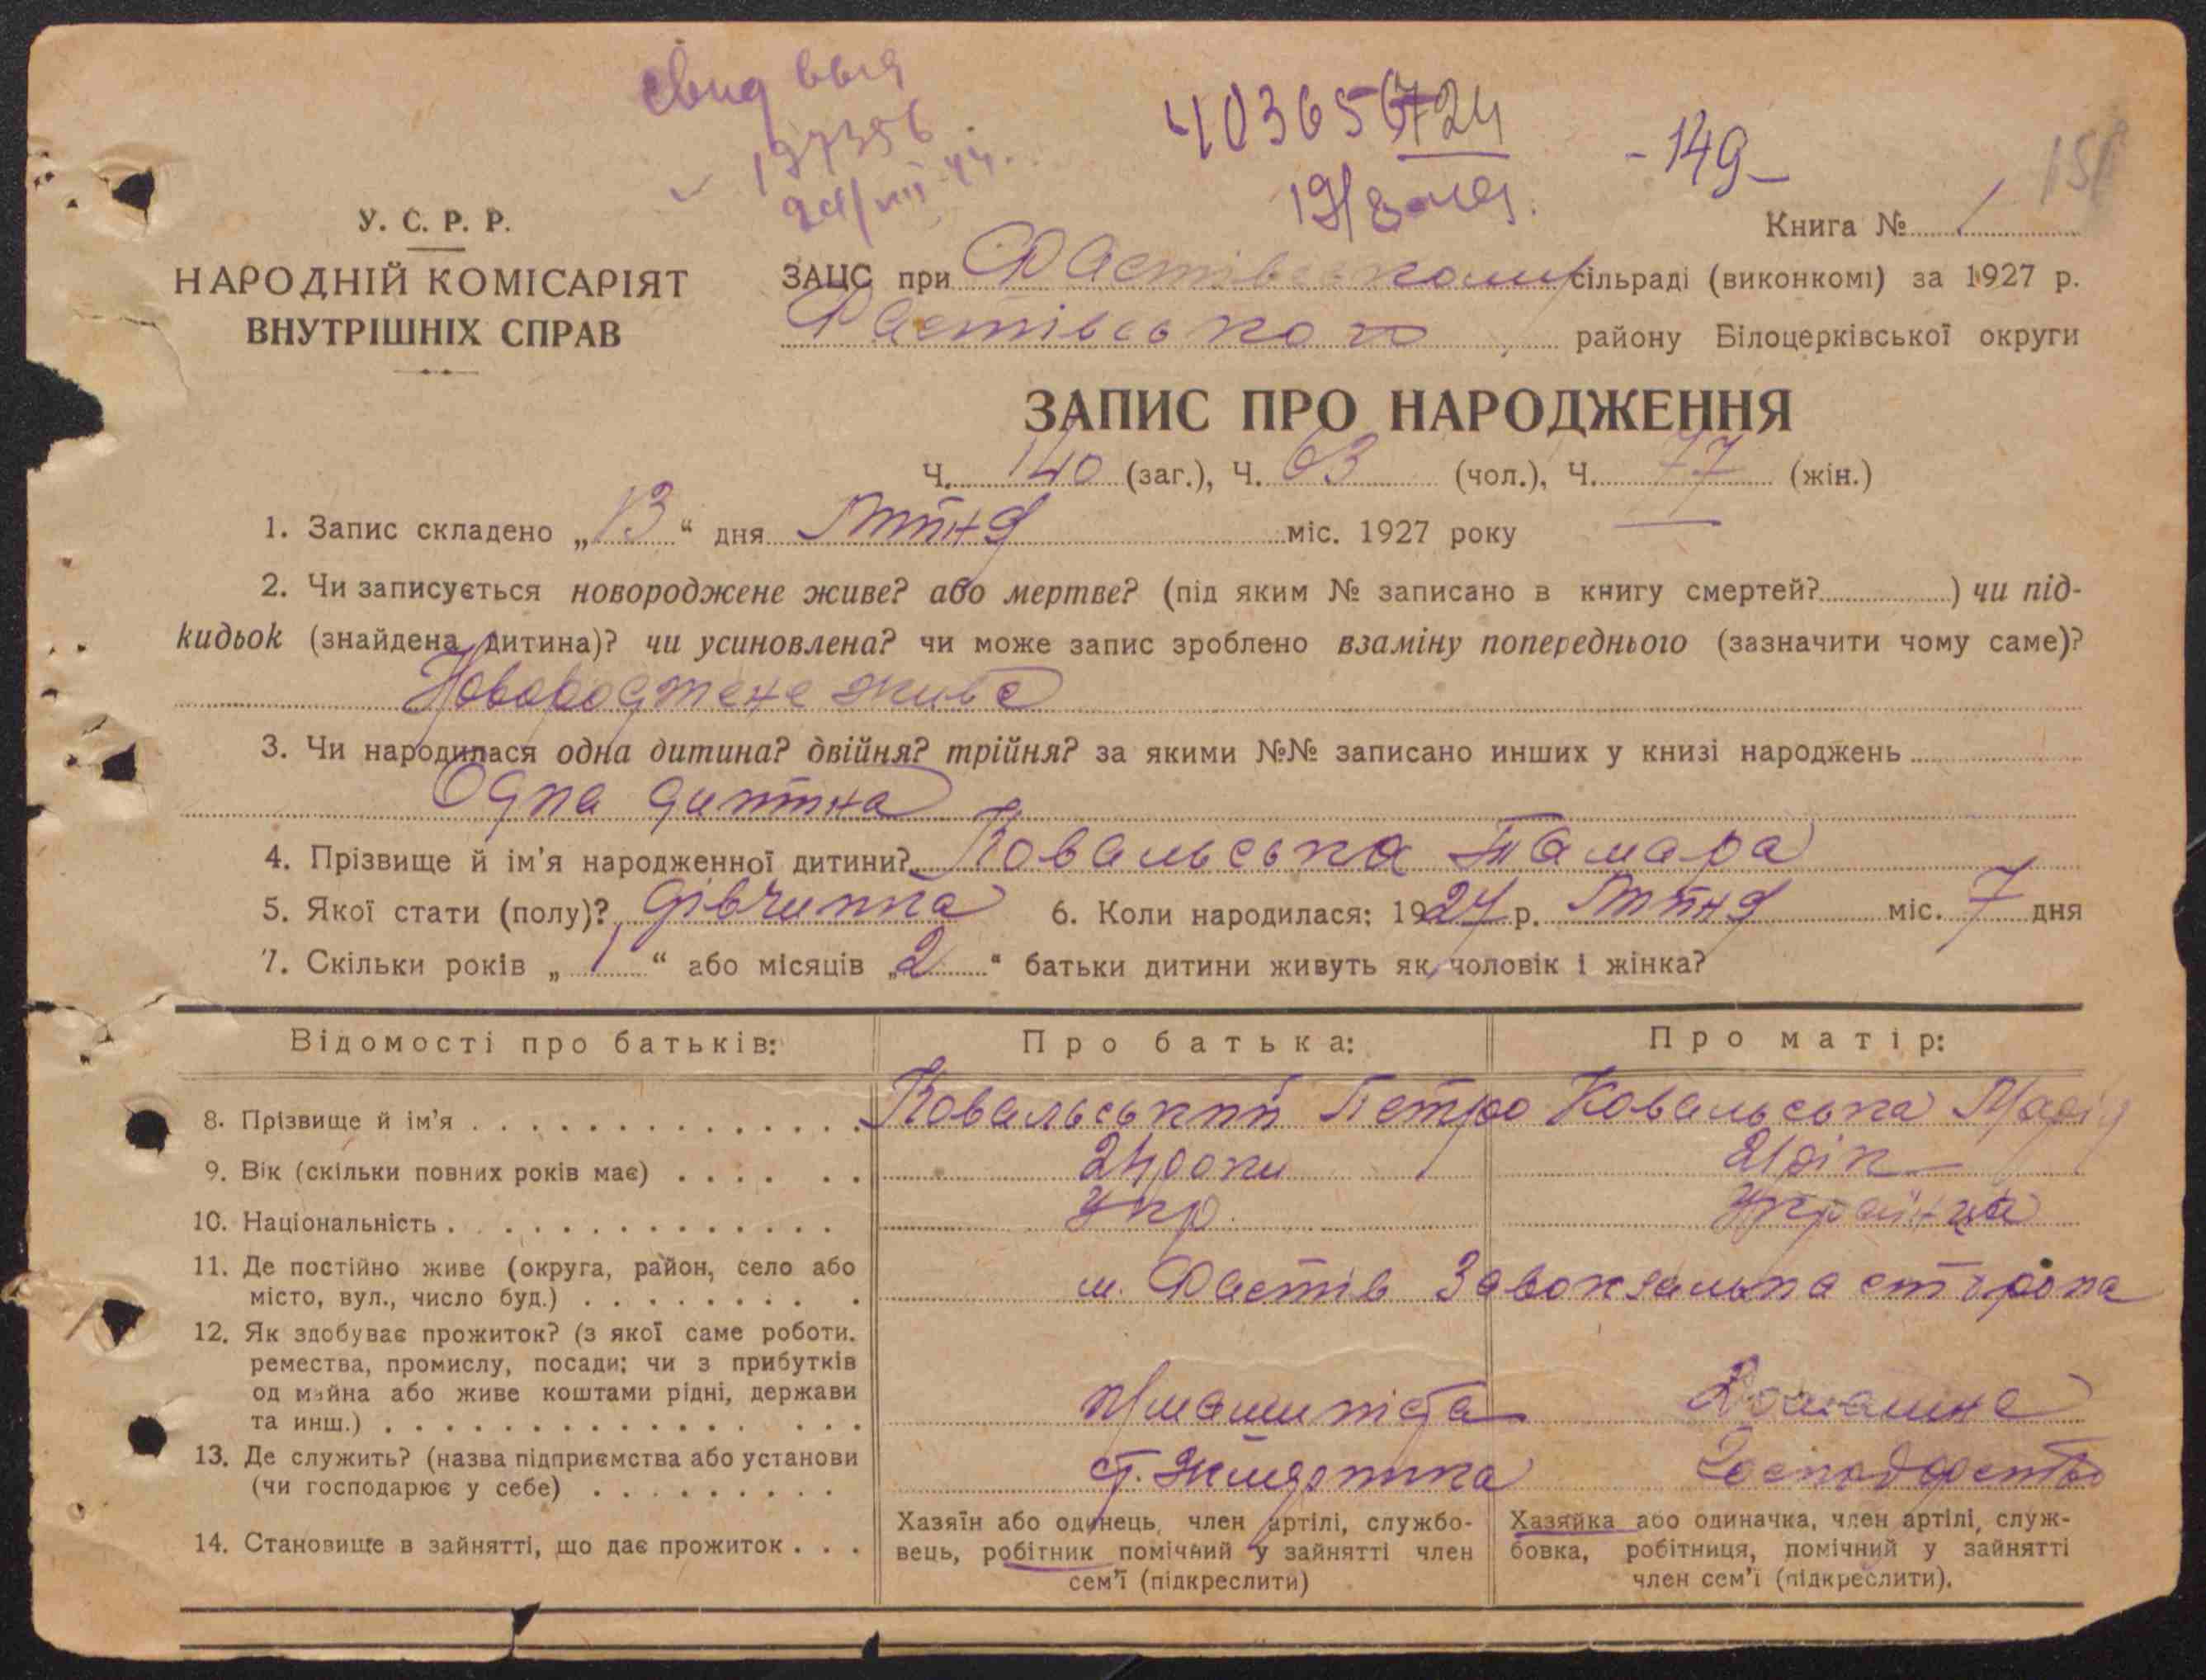 свид выд
197356
403656724
- 149 -
У. С. Р. Р.
НАРОДНІЙ КОМІСАРІЯТ
ВНУТРІШНІХ СПРАВ
Книга № 1
ЗАЦС при Фастівському сільраді (виконкомі) за 1927 р.
Фастівського району Білоцерківської округи
ЗАПИС ПРО НАРОДЖЕННЯ
Ч. 140 (заг.), Ч. 63 (чол.), Ч. 77 (жін.)
1. Запис складено „13“ дня Липня міс. 1927 року
2. Чи записується новороджене живе? або мертве? (під яким № записано в книгу смертей?) чи під-
кидьок (знайдена дитина)? чи усиновлена? чи може запис зроблено взаміну попереднього (зазначити чому саме)?
Новороджене живе
3. Чи народилася одна дитина? двійня? трійня? за якими №№ записано инших у книзі народжень
Одна дитина
4. Прізвище й ім'я народженної дитини? Ковальська Тамара
5. Якої стати (полу)? Дівчинка 6. Коли народилася: 1927 р. Липня міс. 7 дня
7. Скільки років „1“ або місяців „2“ батьки дитини живуть як чоловік і жінка?
Відомості про батьків: Про батька: Про матір:
8. Прізвище й ім'я Ковальський Петро Ковальська Марія
9. Вік (скільки повних років має) 24 роки 21 рік
10. Національність Укр. Українка
11. Де постійно живе (округа, район, село або
місто, вул., число буд.) м. Фастів Завокзальна сторона
12. Як здобуває прожиток? (з якої саме роботи.
ремества, промислу, посади; чи з прибутків
од майна або живе коштами рідні, держави
та инш.) Домашнє
13. Де служить? (назва підприємства або установи
(чи господарює у себе) ст. Жмеринка Господарство
14. Становище в зайнятті, що дає прожиток
Хазяїн або одинець, член артілі, службо-
вець, робітник помічний у зайнятті член
сем'ї (підкреслити)
Хазяйка або одиначка, член артілі, служ-
бовка, робітниця, помічний у зайнятті
член сем'ї (підкреслити).